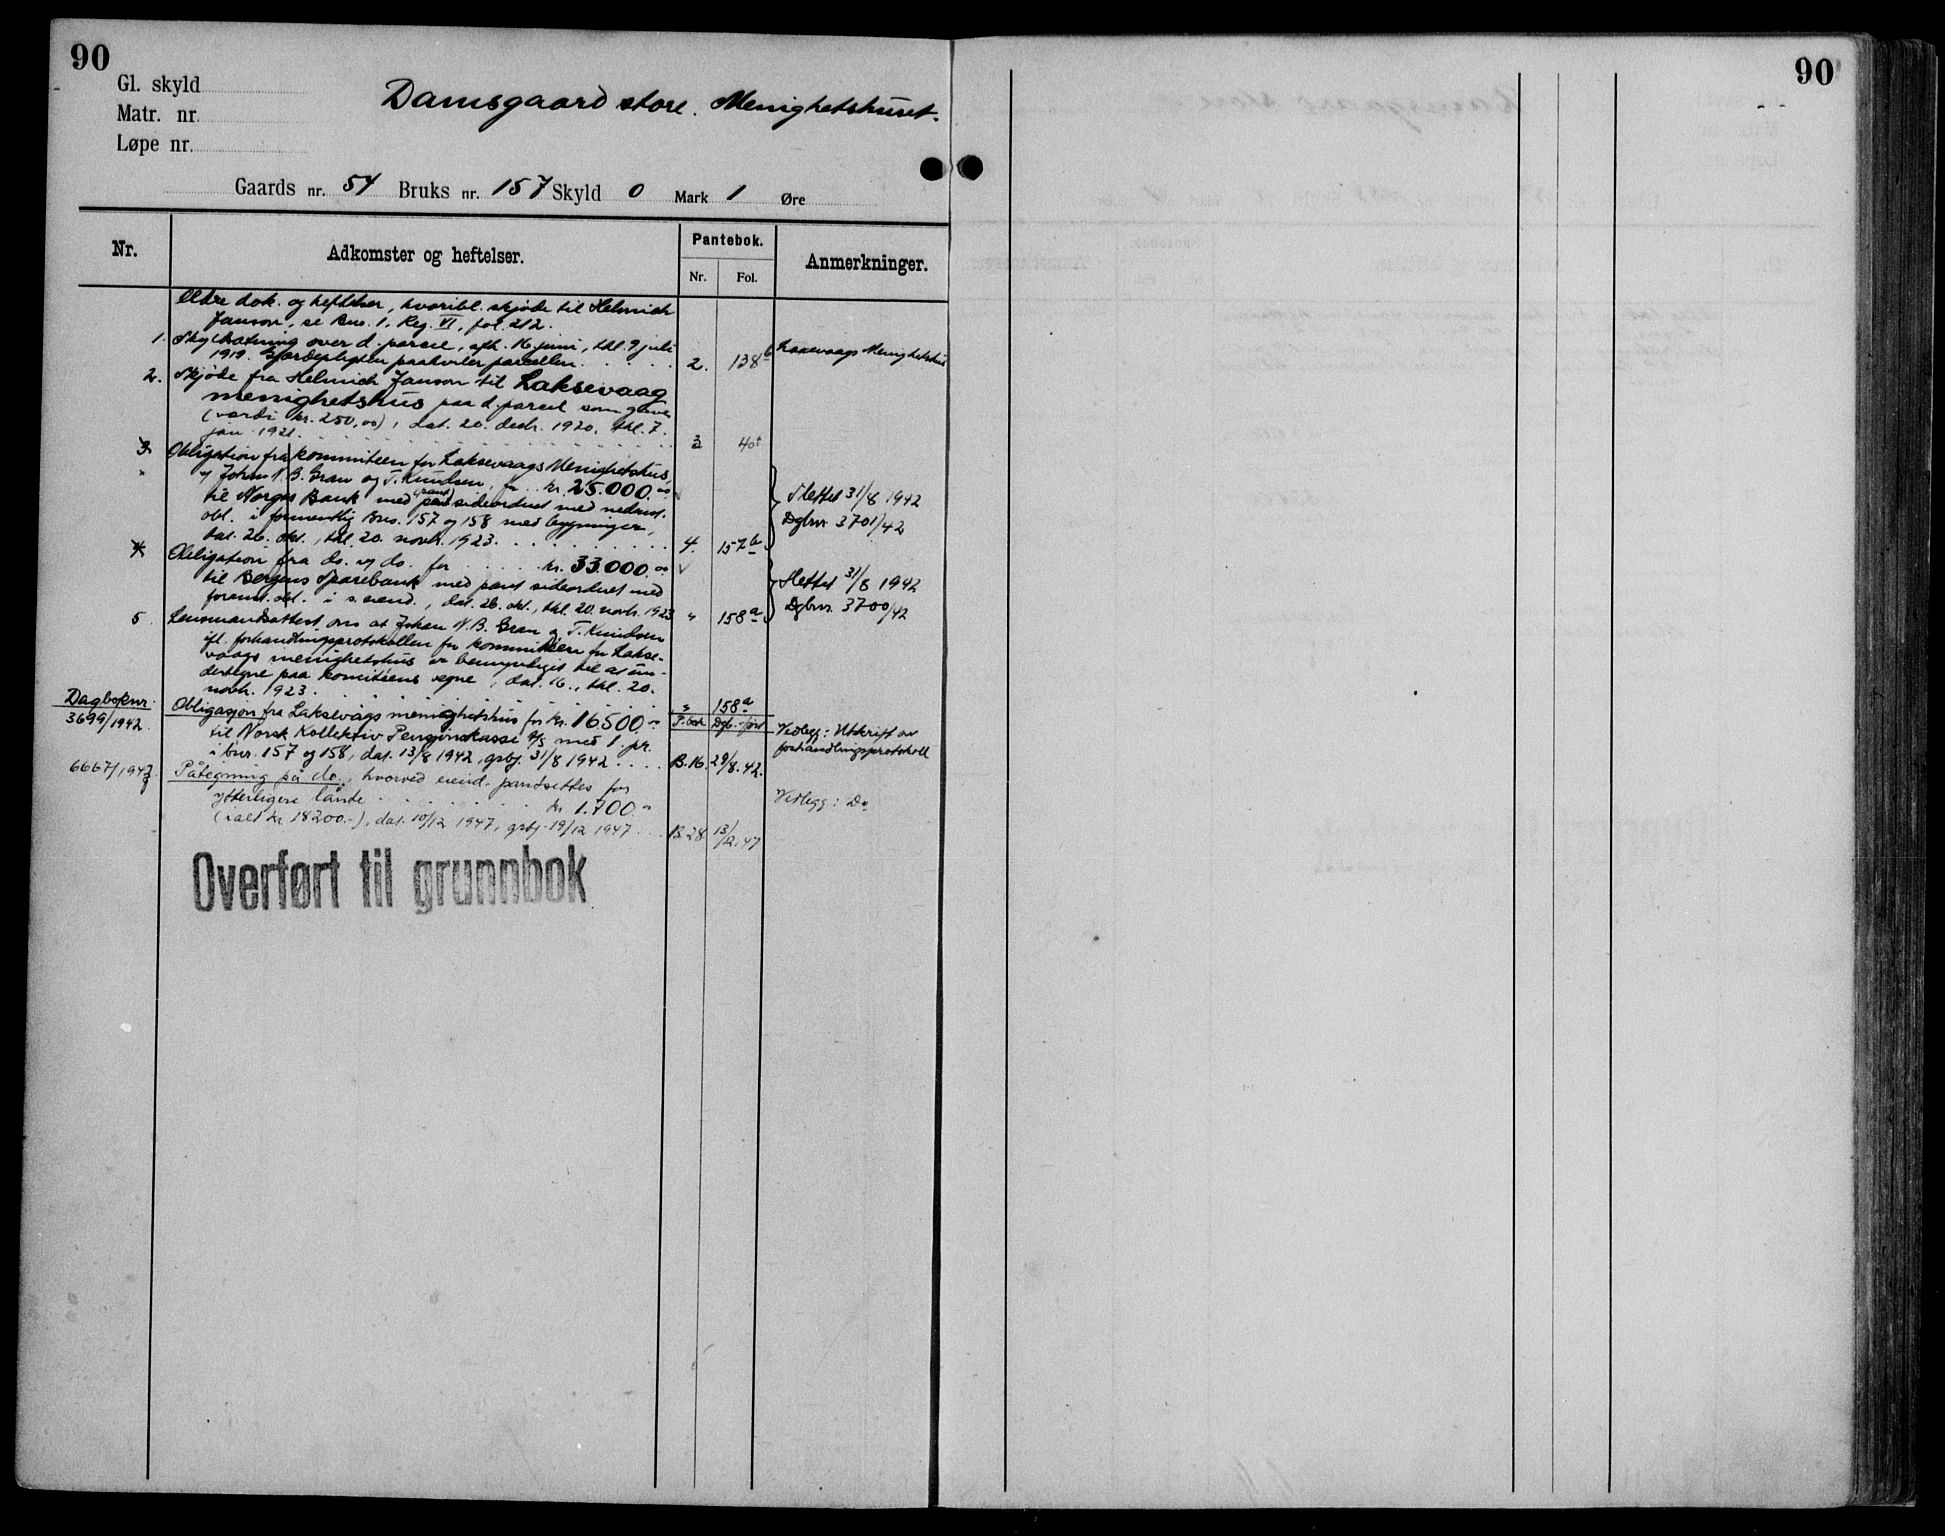 90
90
Gl. skyld
Matr. nr.
Løpe nr.
Damsgaard store. Menighetshuset.
Gaards nr. 54 Bruks nr. 157 Skyld 0 Mark 1 Øre
Nr.
Adkomster og heftelser.
Pantebok.
Nr. Fol.
Anmerkninger.
Ældre dok. og heftelser, horibl. skjøde til Helmich
Janson, se Bno. 1, Reg. VI, fol. 212.
1. Skyldsætning over d. parcel, afh. 16 juni, thl. 9 juli
1919. Gjærdepligten paahviler parcellen. 2. 138 b Laxevaags Menighetshus
2. Skjøde fra Helmich Janson til Laksevaag
menighetshus paa d. parcel som gave
(værdi kr. 250,00), dat. 20. decbr. 1920, thl. 7.
jan 1921. 3 40
3 Obligation fra kommiteen for Laksevaags Menighetshus,
v Johan N. B. Gran og T. Knudsen, for kr. 25.000.00
til Norges Bank med pant sideordnet med nedenst.
obl. i foruten Bno. 157 og 158 med bygninger,
dat. 26. okt., thl. 20. novbr. 1923. 4. 157 b
Slettet 31/8 1942
Dgbnr 3701/42
4 Obligation fra do. v do. for kr. 33.000.00
til Bergens Sparebank med pant sideordnet med
foranst. obl. i s. eiend., dat. 26. okt., thl. 20. novbr. 1923 " 158 a
Slettet 31/8 1942
Dgbnr. 3700/42
5. Lensmandsattest om at Johan N. B. Gran og T. Knudsen
ifl. forhandlingsprotokollen for kommitéen for Lakse-
vaags menighetshus er bemyndiget til at un-
dertegne paa komitéens vegne, dat. 16., thl. 20.
novbr. 1923. " 158 a
Dagboknr.
3699/1942. Obligasjon fra Laksevågs menighetshus for kr. 16500.00 P.bok Dgb.-ført
til Norsk Kollektiv Pensjonskasse A/S med 1. pr.
i bnr. 157 og 158, dat. 13/8 1942, grbj. 31/8 1942 B.16. 29/8.42.
Vedlegg: Utskrift av
forhandlingsprotokoll
6667/1947. Påtegning på do., hvorved eiend. pantsettes for
ytterligere lånte kr 1.700.00
(ialt kr 18200.-), dat. 10/12 1947, grbj. 19/12 1947 B.28 13/12.47
Vedlegg: Do
Overført til grunnbok